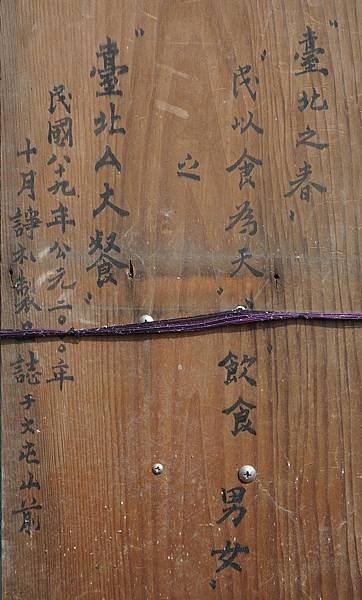 "臺北之春"
"民以食為天"飲食男女"
之
"臺北A大餐"
民國八十九年公元二〇〇〇年
十月 製 誌于大屯山前